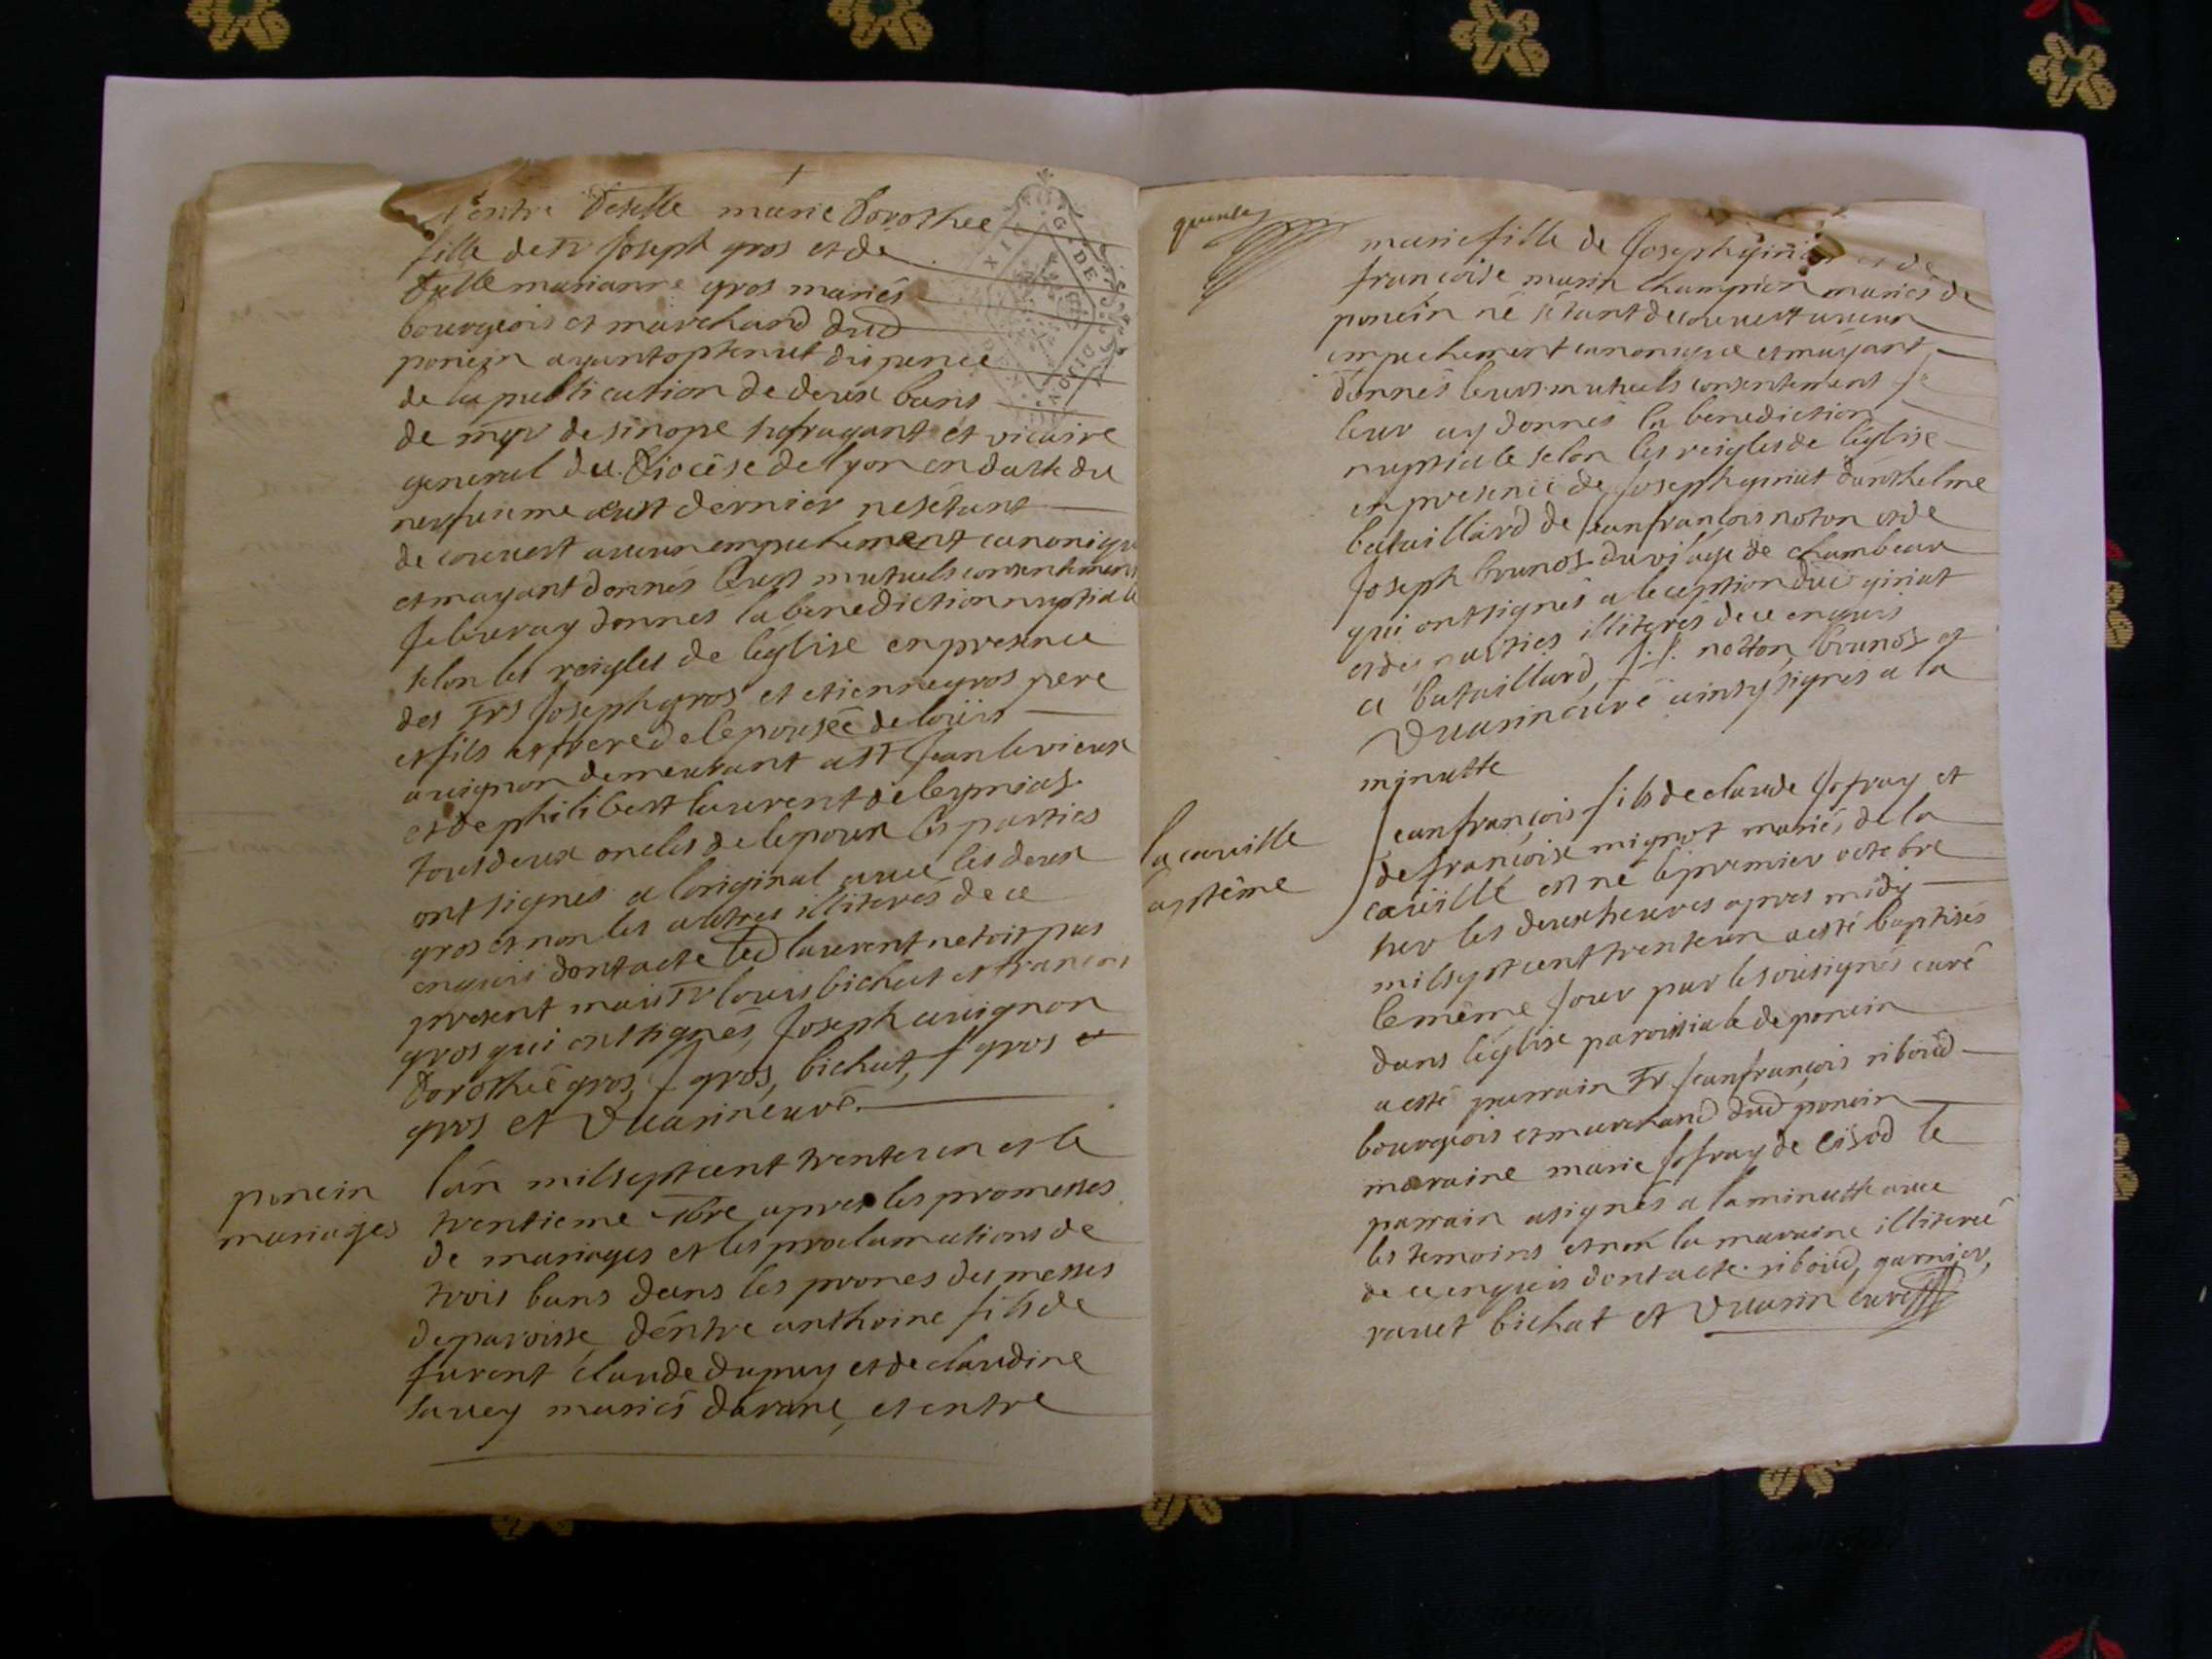 d'entre Delle marie Dorothee
fille de Sr Joseph gros et de
Dlle marianne gros mariés
bourgeois et marchand dud
poncin ayant optenut dispence
de la publication de deux bans
de mgr de sinope sufragant et vicaire
general du Diocése de lyon en datte du
neufuieme aust dernier ne sétant
de couuert aucun empechement canonique
et mayant donnés leurs mutuels consentemens
Je leur ay donnés la benediction nuptiale
selon les reigles de léglise en presence
des Srs Joseph gros et etienne gros pere
et fils et frere de lepousée de loüis
auignon demeurant a St Jean le vieux
et de philibert laurent de leymiat
tous deux oncles de lepoux les parties
ont signés a loriginal auec les deux
gros et non les autres illiterés de ce
enquis dont acte led laurent netoit pas
present mais Sr louis bichat et francois
gros qui ont signés, Joseph auignon
Dorothée gros, J gros, bichat, f gros e
gros et Duarin curé.
poncin
mariages
lan mil sept cent trente un et le
trentieme 7bre apres les promesses
de mariages et les proclamations de
trois bans dans les prones des messes
de paroisse, déntre anthoine fils de
furent claude dupuy et de claudine
sauey mariés davane, et entre
marie fille de Joseph giriat et de
françoise marin champion mariés de
poncin né sétant decouuert aucun
empechement canonique et mayant
donnés leurs mutuels consentemens Je
leur ay donnés la benediction
nuptiale selon les reigles de léglise
en presence de Joseph giriat danthelme
bataillard de Jean françois noton et de
Joseph brunot du vilage de chambeau
qui ont signés a leception dud giriat
et des parties illiterés de ce enquis
a bataillard, J. f. notton, brunot et
Duarin curé ainsy signés a la
minutte
la caüille
aptéme
Jean françois fils de claude Jofray et
de françoise mignot mariés de la
caüille est né le premier octobre
sur les deux heures apres midy
mil sept cent trente un a esté baptisés
le méme Jour par le soûsignés curé
dans léglise paroissiale de poncin
a esté parrain Sr Jean françois riboud
bourgeois et marchand dud poncin
maraine marie Jofray de cisod le
parrain a signés a la minutte auec
les temoins et non la maraine illiterée
de ce enquis dont acte. riboud, garnier,
rauet bichat et Duarin curé